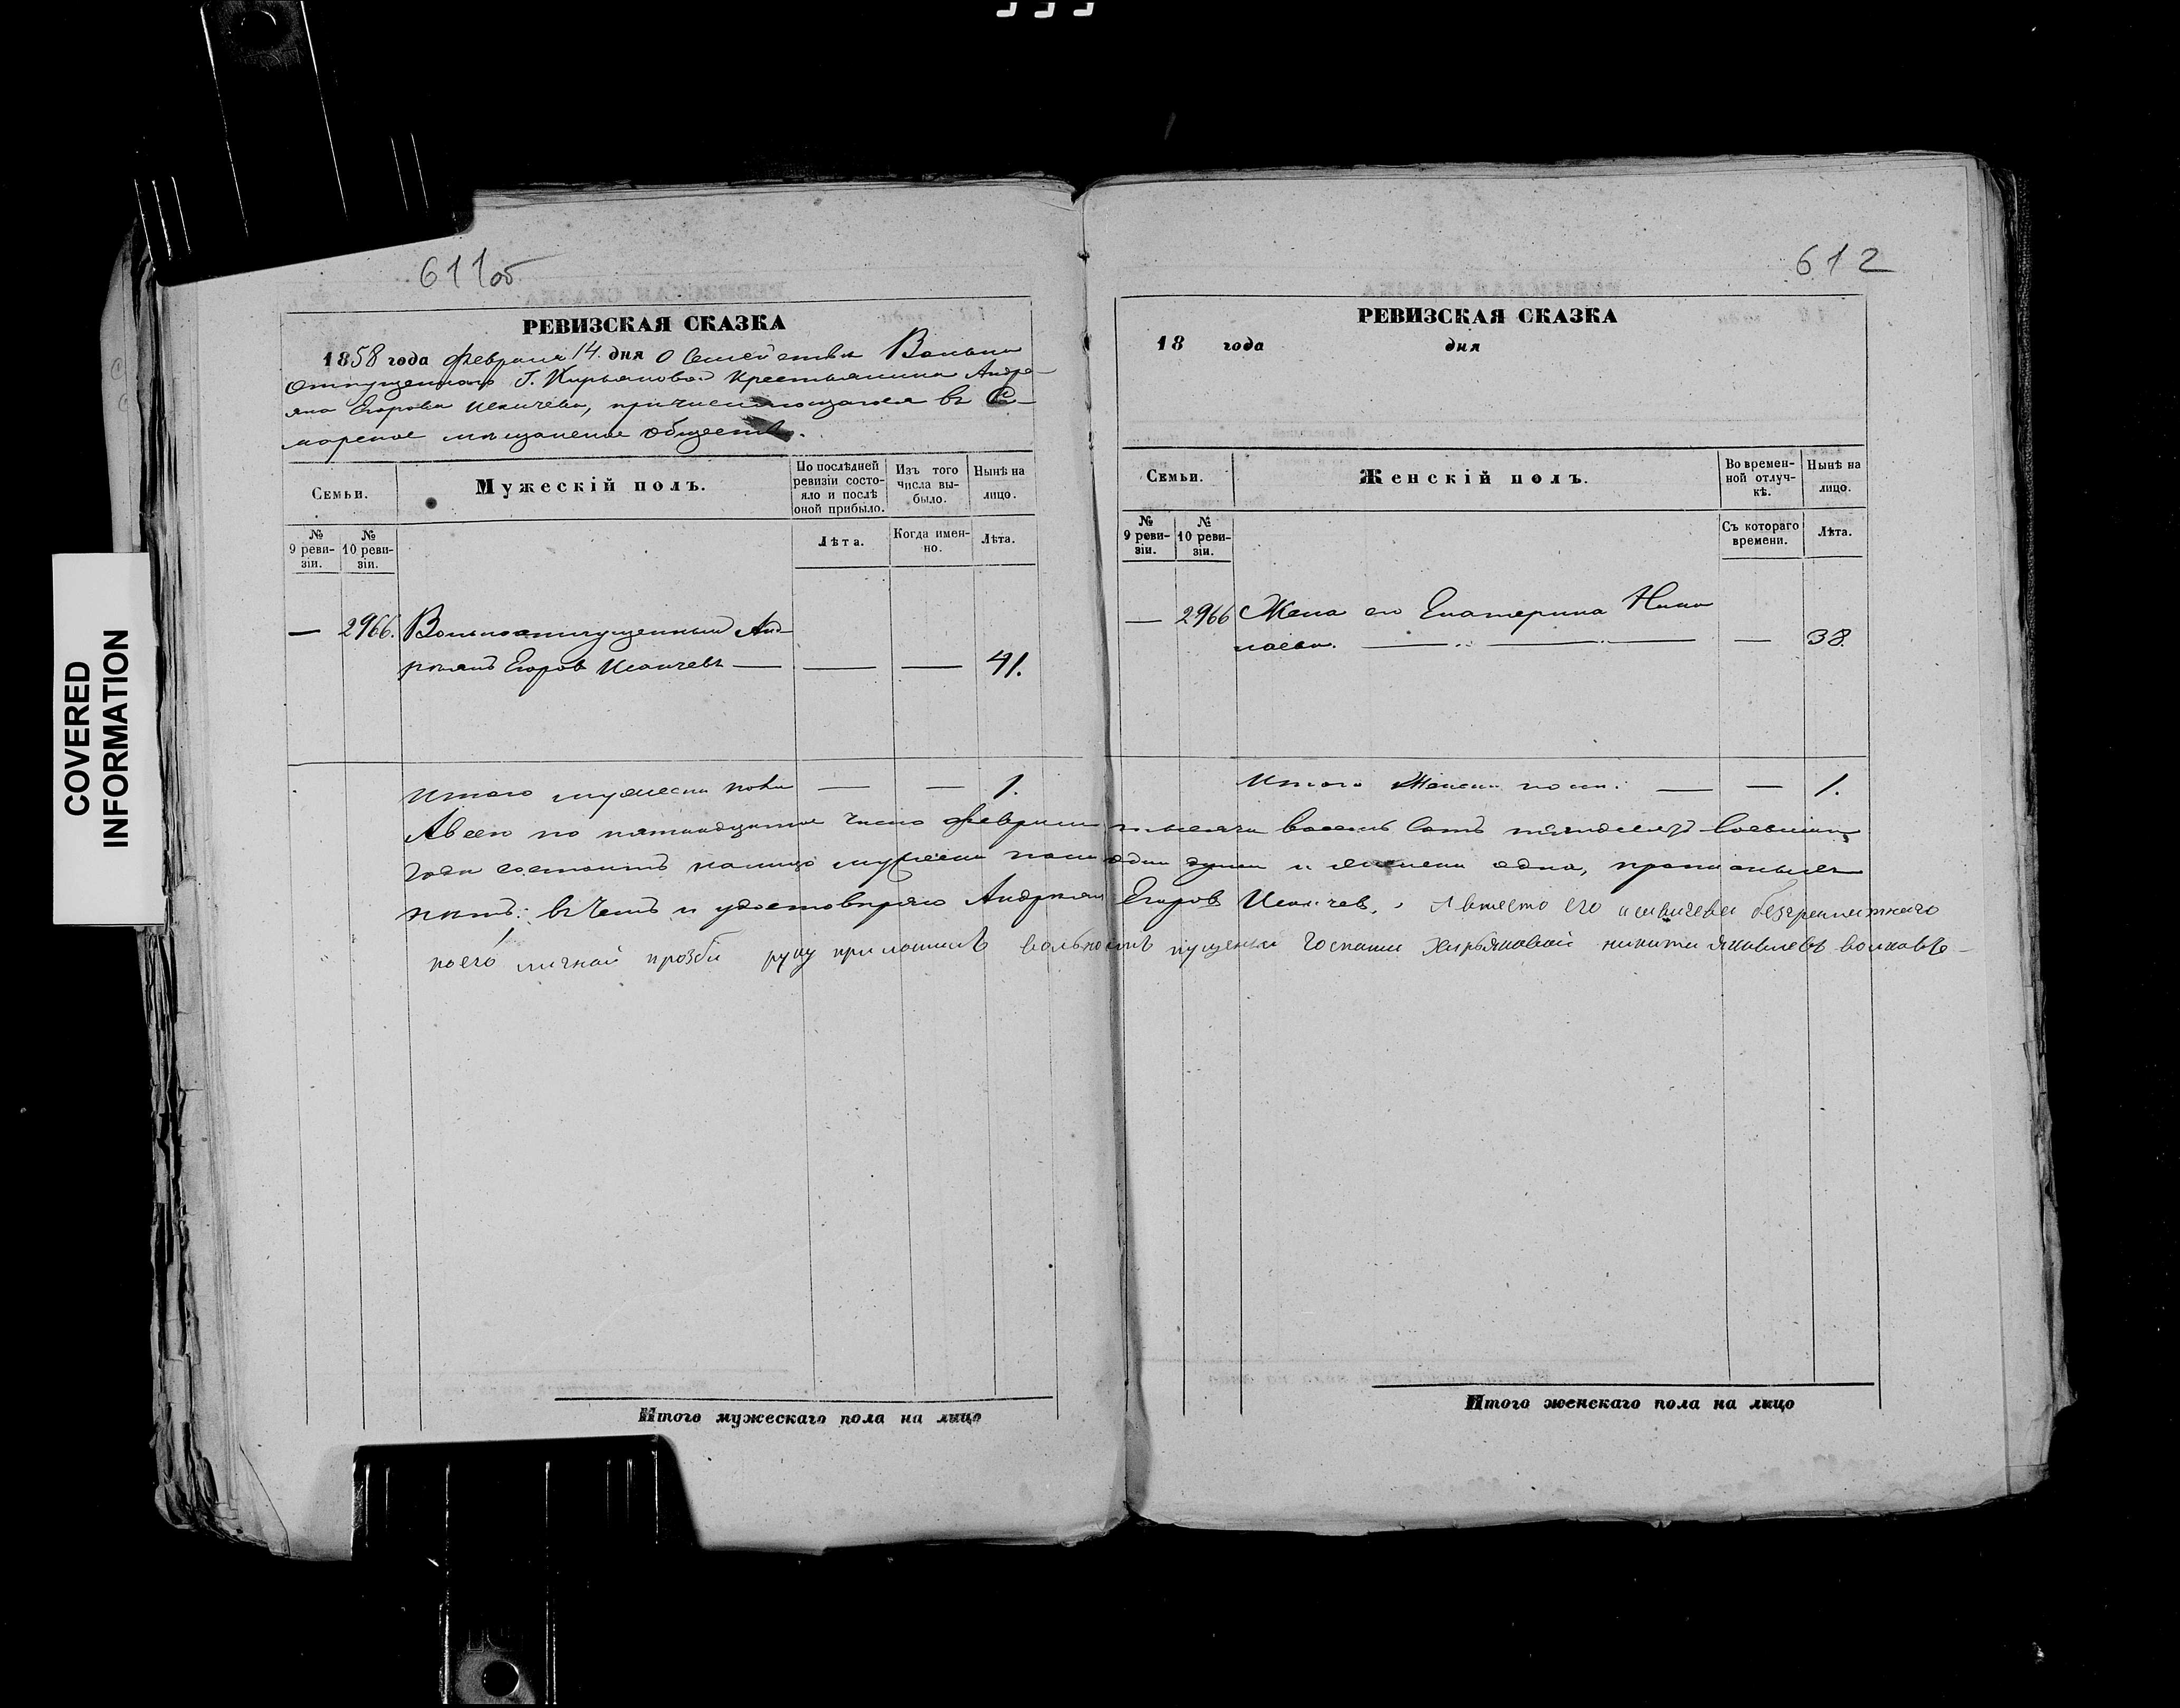 COVERED
INFORMATION
611об
РЕВИЗСКАЯ СКАЗКА
1858 года Февраля 14 дня О Семействѣ Вольно
отпущеннаго Г. Кирьяновой крестьянина Андре-
яна Егорова Исаичева, причисляющагося въ Са-
марское мѣщанское общество.
Семьи.
Мужескій полъ.
По послѣдней ревизіи состо-
яло и послѣ оной прибыло.
Изъ того числа вы-
было.
Нынѣ на лицо.
№ 9 реви-
зіи.
№ 10 реви-
зіи.
Лѣта.
Когда имен-
но.
Лѣта.
— 2966. Вольноотпущенный Анд-
реянъ Егоровъ Исаичевъ — — — 41.
Итого мужеска пола — — 1.
612
РЕВИЗСКАЯ СКАЗКА
18 года дня
Семьи.
Женскій полъ.
Во времен-
ной отлуч-
кѣ.
Нынѣ на лицо.
№ 9 реви-
зіи.
№ 10 реви-
зіи.
Съ котораго времени.
Лѣта.
— 2966 Жена его Екатерина Нико
лаева. — — 38.
Итого Женска пола: — — 1.
А всего по пятнадцатое число Февраля тысяча восемь сотъ пятьдесятъ восьмаго
года состоитъ налицо мужеска пола одна душа и женска одна, прописныхъ
нѣтъ: въ чемъ и удостовѣряю Андреянъ Егоровъ Исаичев. А вместо его исаичева безграмотнаго
поего личной прозбѣ руку приложилъ вольноотпущеный Госпожи Кирьяновой никита яковлевъ волковъ
Итого мужескаго пола на лицо
Итого женскаго пола на лицо